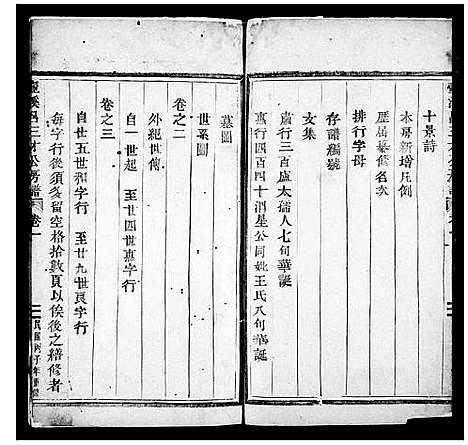 十景詩
本房新增凡例
歷屆纂修名次
排行字母
存譜編號
文集
嘉行三百盧太孺人七旬華誕
嘉行四百四十泗星公同妣王氏八旬華誕
墓圖
世系圖
卷之二
外紀世傳
自一世起 至廿四世嘉字行
卷之三
自廿五世和字行 至廿九世良字行
每字行後須多留空格拾數頁以俟後之繕修者
溪呂三才公房譜 卷一
民國丙子年重修